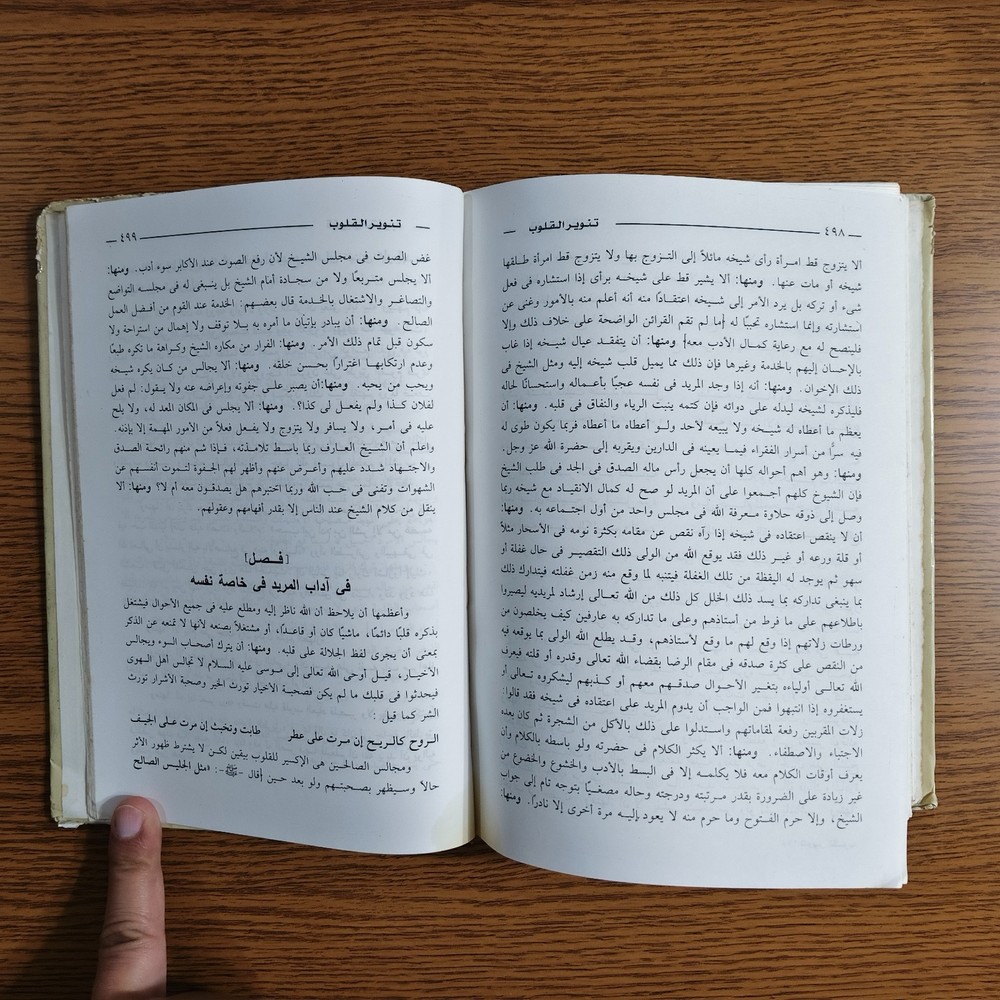 ٤٩٨ تنوير القلوب
ألا يتزوج قط امرأة رأى شيخه مائلاً إلى التزوج بها ولا يتزوج قط امرأة طلقها
شيخه أو مات عنها. ومنها: ألا يشير قط على شيخه برأى إذا استشاره فى فعل
شىء أو تركه بل يرد الأمر إلى شيخه اعتقادًا منه أنه أعلم منه بالأمور وغنى عن
استشارته وإنما استشاره تحببًا له {ما لم تقم القرائن الواضحة على خلاف ذلك وإلا
فلينصح له مع رعاية كمال الأدب معه} ومنها: أن يتفقد عيال شيخه إذا غاب
بالإحسان إليهم بالخدمة وغيرها فإن ذلك مما يميل قلب شيخه إليه ومثل الشيخ فى
ذلك الإخوان. ومنها: أنه إذا وجد المريد فى نفسه عجبًا بأعماله واستحسانًا لحاله
فليذكره لشيخه ليدله على دوائه فإن كتمه ينبت الرياء والنفاق فى قلبه. ومنها: أن
يعظم ما أعطاه له شيخه ولا يبيعه لأحد ولو أعطاه ما أعطاه فربما يكون طوى له
فيه سرًّا من أسرار الفقراء فيما يعينه فى الدارين ويقربه إلى حضرة الله عز وجل.
ومنها: وهو أهم أحواله كلها أن يجعل رأس ماله الصدق فى الجد فى طلب الشيخ
فإن الشيوخ كلهم أجمعوا على أن المريد لو صح له كمال الانقياد مع شيخه ربما
وصل إلى ذوقه حلاوة معرفة الله فى مجلس واحد من أول اجتماعه به. ومنها:
أن لا ينقص اعتقاده فى شيخه إذا رآه نقص عن مقامه بكثرة نومه فى الأسحار مثلاً
أو قلة ورعه أو غير ذلك فقد يوقع الله من الولى ذلك التقصير فى حال غفلة أو
سهو ثم يوجد له اليقظة من تلك الغفلة فيتنبه لما وقع منه زمن غفلته فيتدارك ذلك
بما ينبغى تداركه بما يسد ذلك الخلل كل ذلك من الله تعالى إرشاد لمريديه ليصيروا
باطلاعهم على ما فرط من أستاذهم وعلى ما تداركه به عارفين كيف يخلصون من
ورطات زلاتهم إذا وقع لهم ما وقع لأستاذهم، وقد يطلع الله الولى بما يوقعه فيه
من النقص على كثرة صدقه فى مقام الرضا بقضاء الله تعالى وقدره أو قلته فيعرف
الله تعالى أولياءه بتغير الأحوال صدقهم معهم أو كذبهم ليشكروه تعالى أو
يستغفروه إذا انتبهوا فمن الواجب أن يدوم المريد على اعتقاده فى شيخه فقد قالوا:
زلات المقربين رفعة لمقاماتهم واستدلوا على ذلك بالأكل من الشجرة ثم كان بعده
الاجتباء والاصطفاء. ومنها: ألا يكثر الكلام فى حضرته ولو باسطه بالكلام وأن
يعرف أوقات الكلام معه فلا يكلمه إلا فى البسط بالأدب والخشوع والخضوع من
غير زيادة على الضرورة بقدر مرتبته ودرجته وحاله مصغيًا بتوجه تام إلى جواب
الشيخ، وإلا حرم الفتوح وما حرم منه لا يعود إليه مرة أخرى إلا نادرًا. ومنها:
تنوير القلوب ٤٩٩
غض الصوت فى مجلس الشيخ لأن رفع الصوت عند الأكابر سوء أدب. ومنها:
ألا يجلس متربعًا ولا من سجادة أمام الشيخ بل ينبغى له فى مجلسه التواضع
والتصاغر والاشتغال بالخدمة قال بعضهم: الخدمة عند القوم من أفضل العمل
الصالح. ومنها: أن يبادر بإتيان ما أمره به بلا توقف ولا إهمال من استراحة ولا
سكون قبل تمام ذلك الأمر. ومنها: الفرار من مكاره الشيخ وكراهة ما تكره طبعًا
وعدم ارتكابها اغترارًا بحسن خلقه. ومنها: ألا يجالس من كان يكره شيخه
ويحب من يحبه. ومنها: أن يصبر على جفوته وإعراضه عنه ولا يقول: لم فعل
لفلان كذا ولم يفعل لى كذا؟. ومنها: ألا يجلس فى المكان المعد له، ولا يلح
عليه فى أمر، ولا يسافر ولا يتزوج ولا يفعل فعلاً من الأمور المهمة إلا بإذنه.
واعلم أن الشيخ العارف ربما باسط تلامذته، فإذا شم منهم رائحة الصدق
والاجتهاد شدد عليهم وأعرض عنهم وأظهر لهم الجفوة لتموت أنفسهم عن
الشهوات وتفنى فى حب الله وربما اختبرهم هل يصدقون معه أم لا؟ ومنها: ألا
ينقل من كلام الشيخ عند الناس إلا بقدر أفهامهم وعقولهم.
[فصل]
فى آداب المريد فى خاصة نفسه
وأعظمها أن يلاحظ أن الله ناظر إليه ومطلع عليه فى جميع الأحوال فيشتغل
بذكره قلبًا دائمًا، ماشيًا كان أو قاعدًا، أو مشتغلاً بصنعه لأنها لا تمنعه عن الذكر
بمعنى أن يجرى لفظ الجلالة على قلبه. ومنها: أن يترك أصحاب السوء ويجالس
الأخيار، قيل أوحى الله تعالى إلى موسى عليه السلام لا تجالس أهل الهوى
فيحدثوا فى قلبك ما لم يكن فصحبة الأخيار تورث الخير وصحبة الأشرار تورث
الشر كما قيل :
الروح كالريح إن مرت على عطر طابت وتخبث إن مرت على الجيف
ومجالس الصالحين هى الإكسير للقلوب بيقين لكن لا يشترط ظهور الأثر
حالاً وسيظهر بصحبتهم ولو بعد حين {قال -ﷺ-: «مثل الجليس الصالح